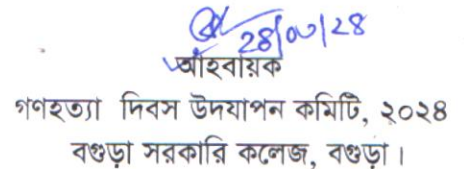 ২৪/০৩/২৪
আহবায়ক
গণহত্যা দিবস উদযাপন কমিটি, ২০২৪
বগুড়া সরকারি কলেজ, বগুড়া।